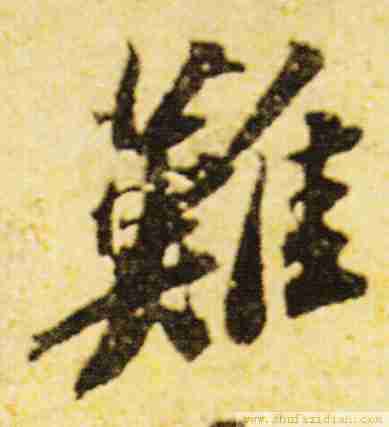 難
www.shufazidian.com